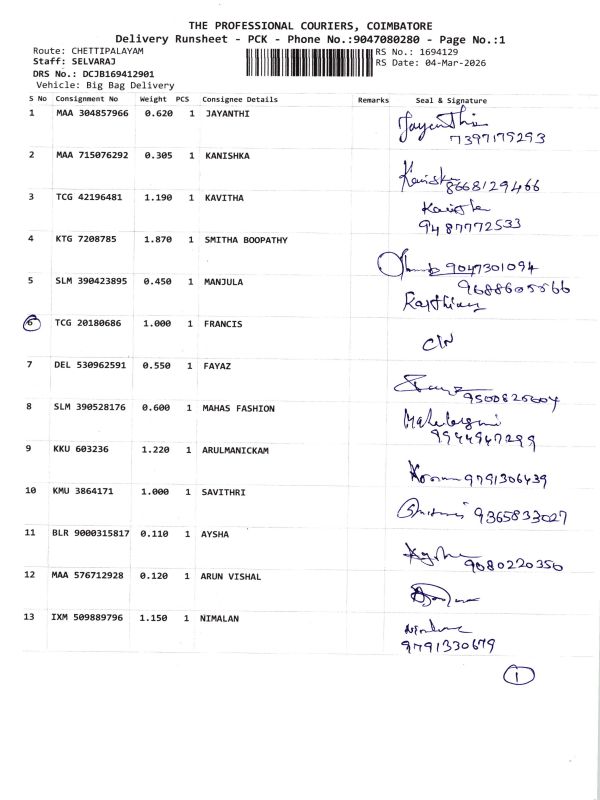 THE PROFESSIONAL COURIERS, COIMBATORE
Delivery Runsheet - PCK - Phone No.:9047080280 - Page No.:1
Route: CHETTIPALAYAM
Staff: SELVARAJ
DRS No.: DCJB169412901
Vehicle: Big Bag Delivery
RS No.: 1694129
RS Date: 04-Mar-2026
S No Consignment No Weight PCS Consignee Details Remarks Seal & Signature
1 MAA 304857966 0.620 1 JAYANTHI Jayanthi
7397175293
2 MAA 715076292 0.305 1 KANISHKA Kanishka 8668129466
3 TCG 42196481 1.190 1 KAVITHA Kavitha
9487772533
4 KTG 7208785 1.870 1 SMITHA BOOPATHY 9047301094
5 SLM 390423895 0.450 1 MANJULA
6 TCG 20180686 1.000 1 FRANCIS
7 DEL 530962591 0.550 1 FAYAZ
8 SLM 390528176 0.600 1 MAHAS FASHION
9944947299
9 KKU 603236 1.220 1 ARULMANICKAM 9791306439
10 KMU 3864171 1.000 1 SAVITHRI 9365833027
11 BLR 9000315817 0.110 1 AYSHA 9080220350
12 MAA 576712928 0.120 1 ARUN VISHAL
13 IXM 509889796 1.150 1 NIMALAN
9791330679
1